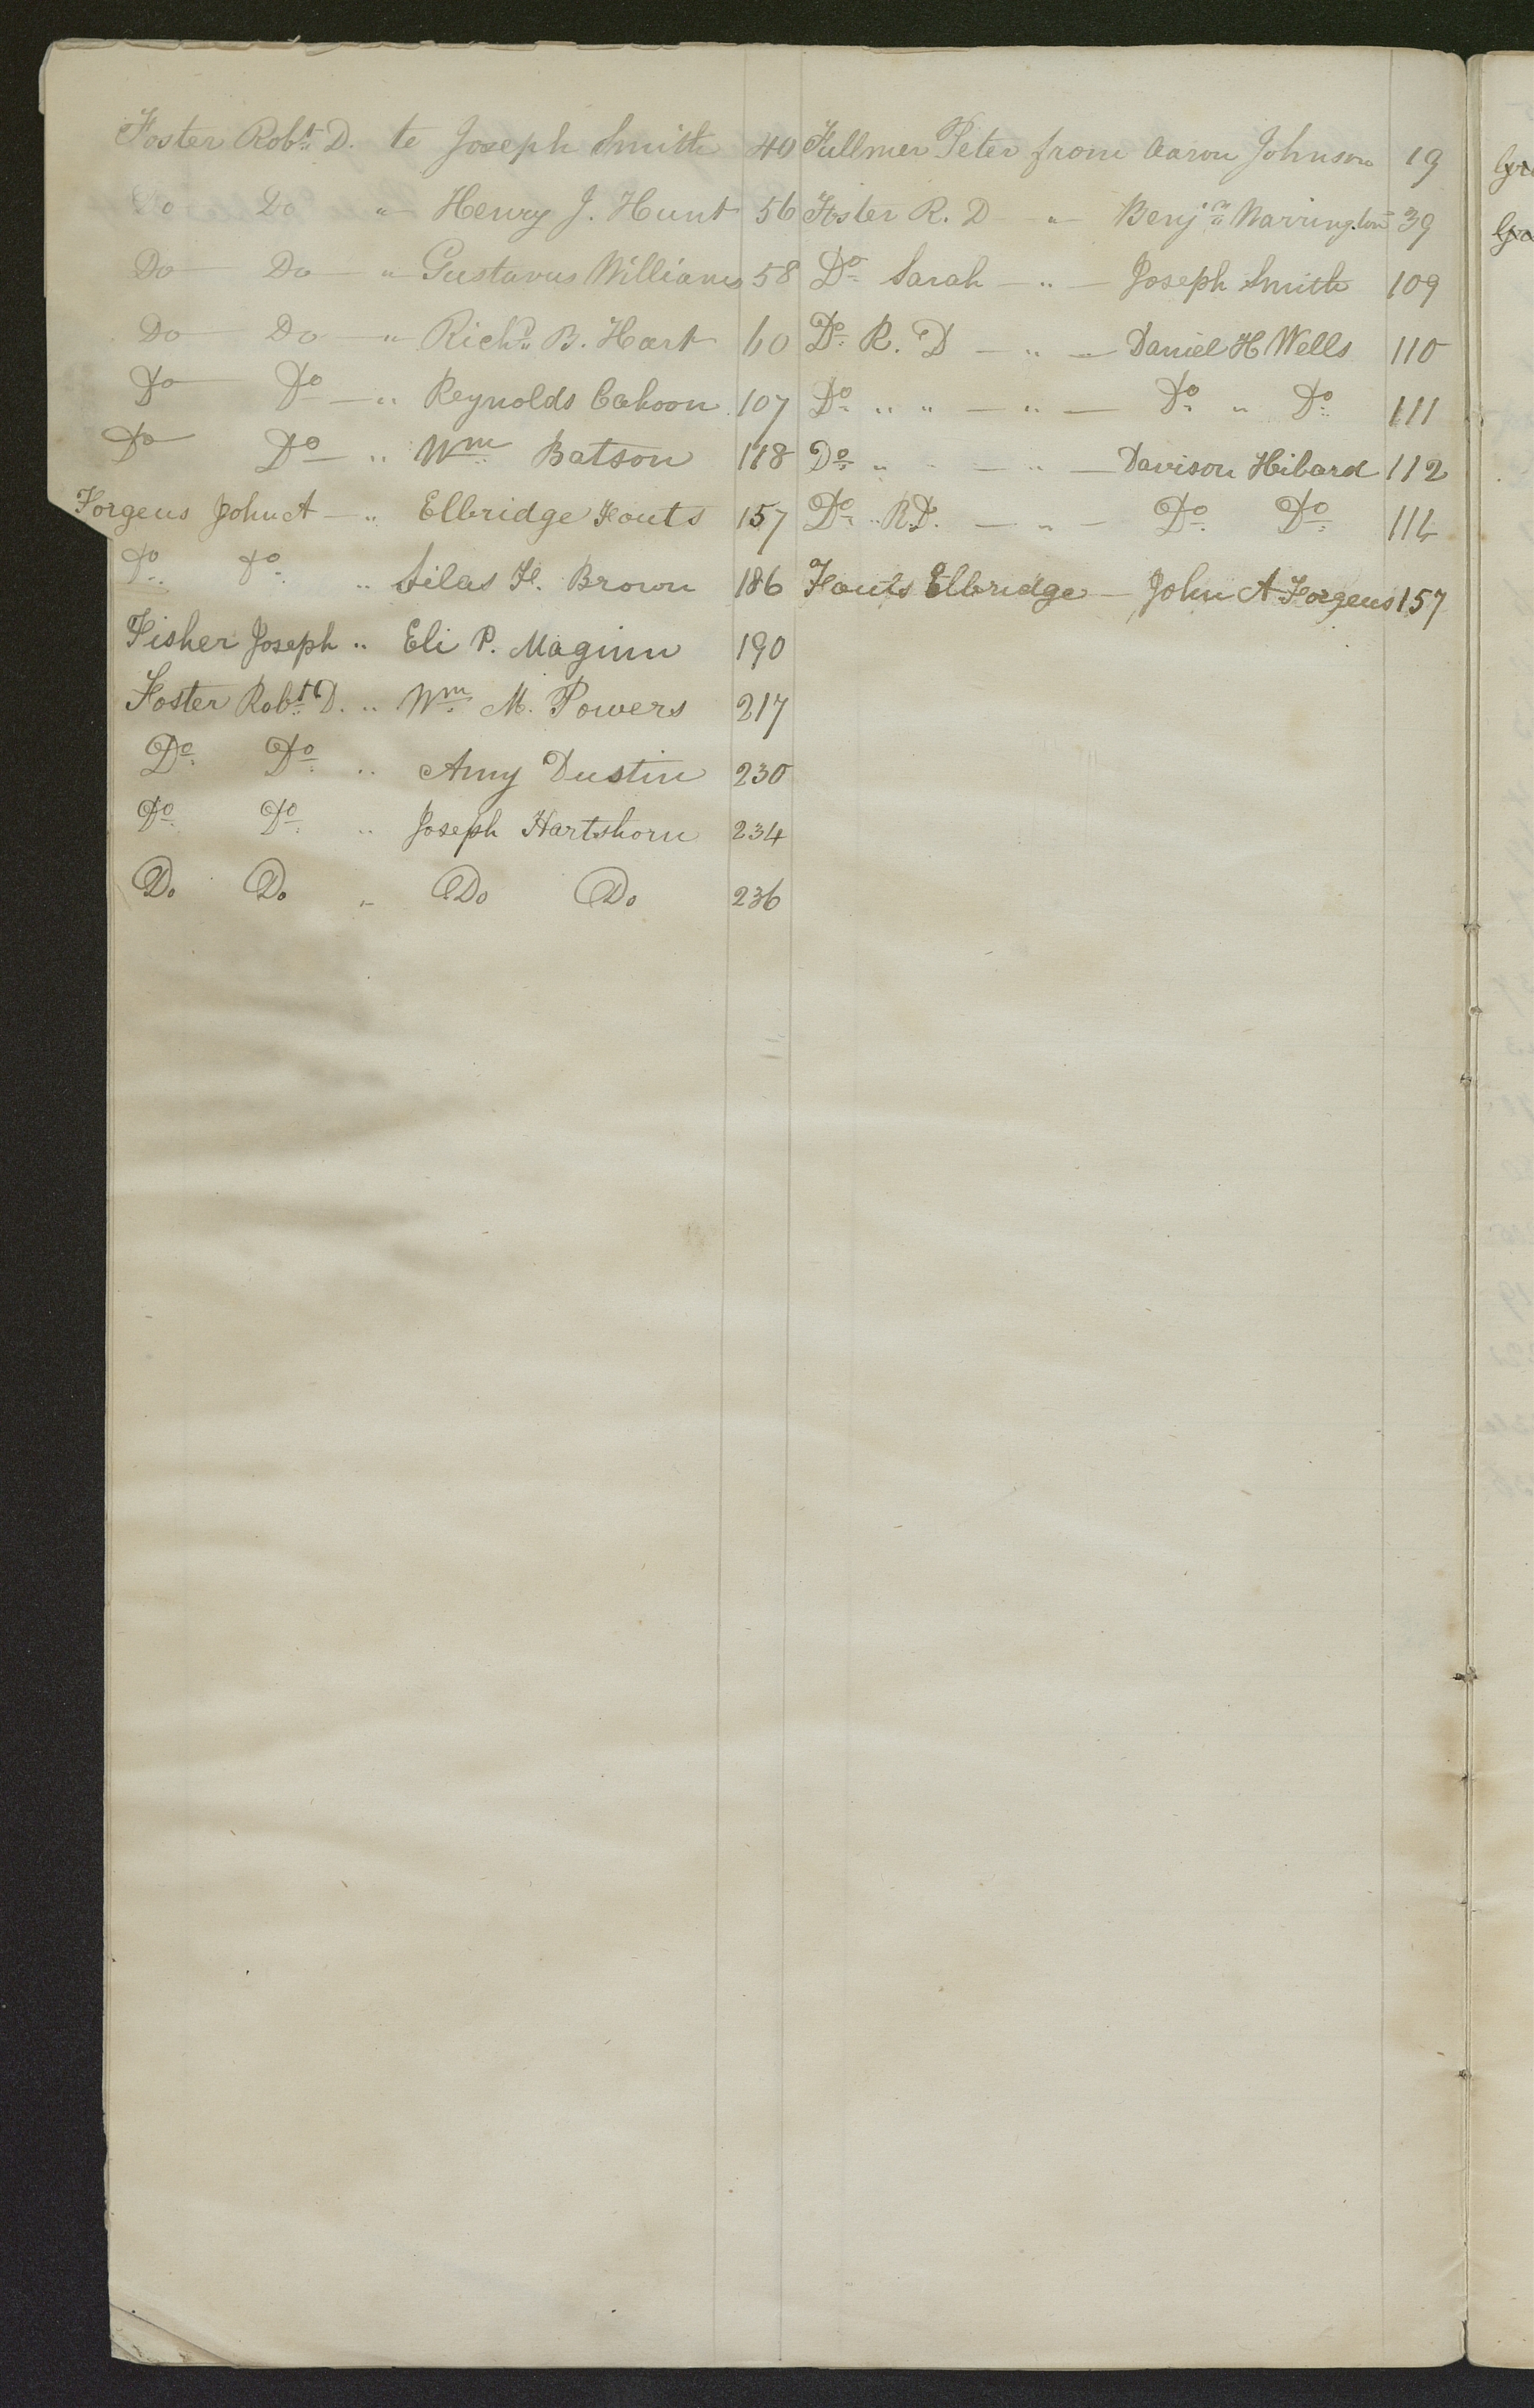 Foster Robt. D. to Joseph Smith 40
Do Do " Henry J. Hunt 56
Do Do " Gustavus Williams 58
Do Do " Richd. B. Hart 60
Do Do " Reynolds Cahoon 107
Do Do " Wm. Batson 118
Forgeus John A " Elbridge Fouts 157
Do Do " Silas H. Brown 186
Fisher Joseph " Eli P. Maginn 190
Foster Robt. D. " Wm. M. Powers 217
Do Do " Amy Dustin 230
Do Do " Joseph Hartshorn 234
Do Do " Do Do 236
Fullmer Peter from Aaron Johnson 19
Foster R. D " Benjn. Warrington 39
Do Sarah " Joseph Smith 109
Do R. D " Daniel H Wells 110
Do " " " Do " Do 111
Do " " " Davison Hibard 112
Do " R.D. " Do Do 114
Fouts Elbridge John A Forgeus 157